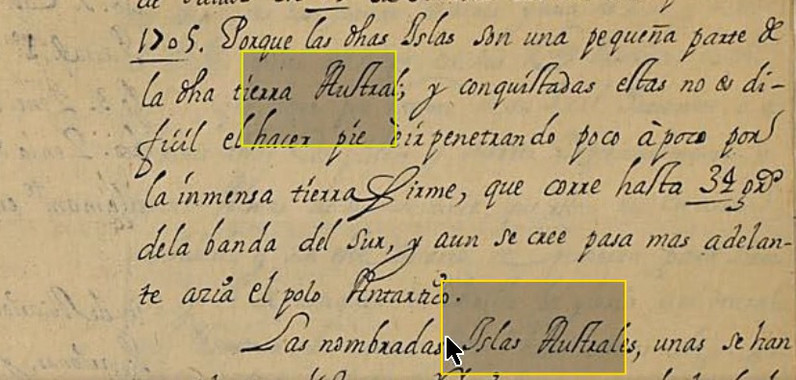 1705. Porque las dhas Islas son una pequeña parte de
la dha tierra Austral, y conquistadas estas no es di-
ficil el hacer pie è ir penetrando poco à poco por
la inmensa tierra Firme, que corre hasta 34 grs
dela banda del Sur, y aun se cree pasa mas adelan-
te azia el polo Antartico.
Las nombradas Islas Australes, unas se han